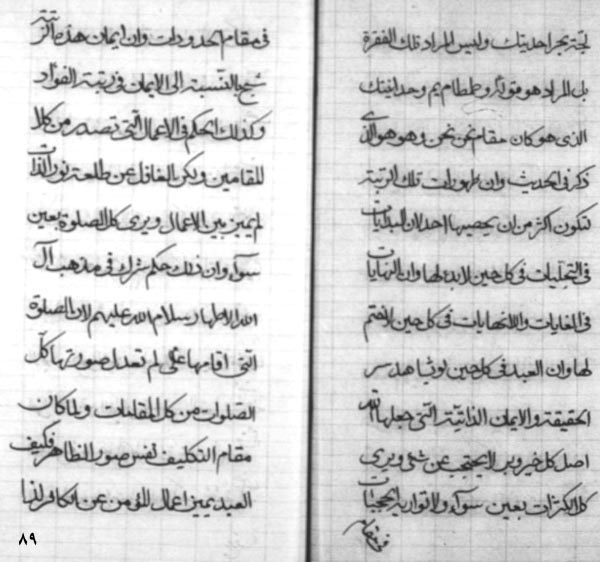 لجة بحر احديتك وليس المراد تلك الفقرة
بل المراد هو قولك وطمطام يم وحدانيتك
الذى هو كان مقام نحن نحن وهو هو الذى
ذكر فى الحديث وان ظهورات تلك الرتبة
لتكون اكثر من ان يحصيها احد لان البدايات
فى التجليات فى كل حين لا بدء لها وان النهايات
فى الغايات واللانهايات فى كل حين لا ختم
لها وان العبد فى كل حين لو شاهد سر
الحقيقة والايمان الذاتية التى جعلها الله
اصل كل خير وبر لا يحتجب عن شئ ويرى
كل الكثرات بعين سواء ولا تواريه الحجبات
فى مقام
فى مقام الحدودات وان ايمان هذه الرتبة
شبح بالنسبة الى الايمان فى رتبة الفؤاد
وكذلك الحكم فى الاعمال التى تصدر من كلا
المقامين ولكن الغافل عن طلعة نور الذات
لم يميز بين الاعمال ويرى كل الصلوة بعين
سواء وان ذلك حكم شرك فى مذهب آل
الله الاطهار سلام الله عليهم لان الصلوة
التى اقامها على لم تعدل صورتها كل
الصلوات من كل المقامات ولما كان
مقام التكليف نفس صور الظاهر فكيف
العبد يميز اعمال المؤمن عن الكافر لذا
٨٩